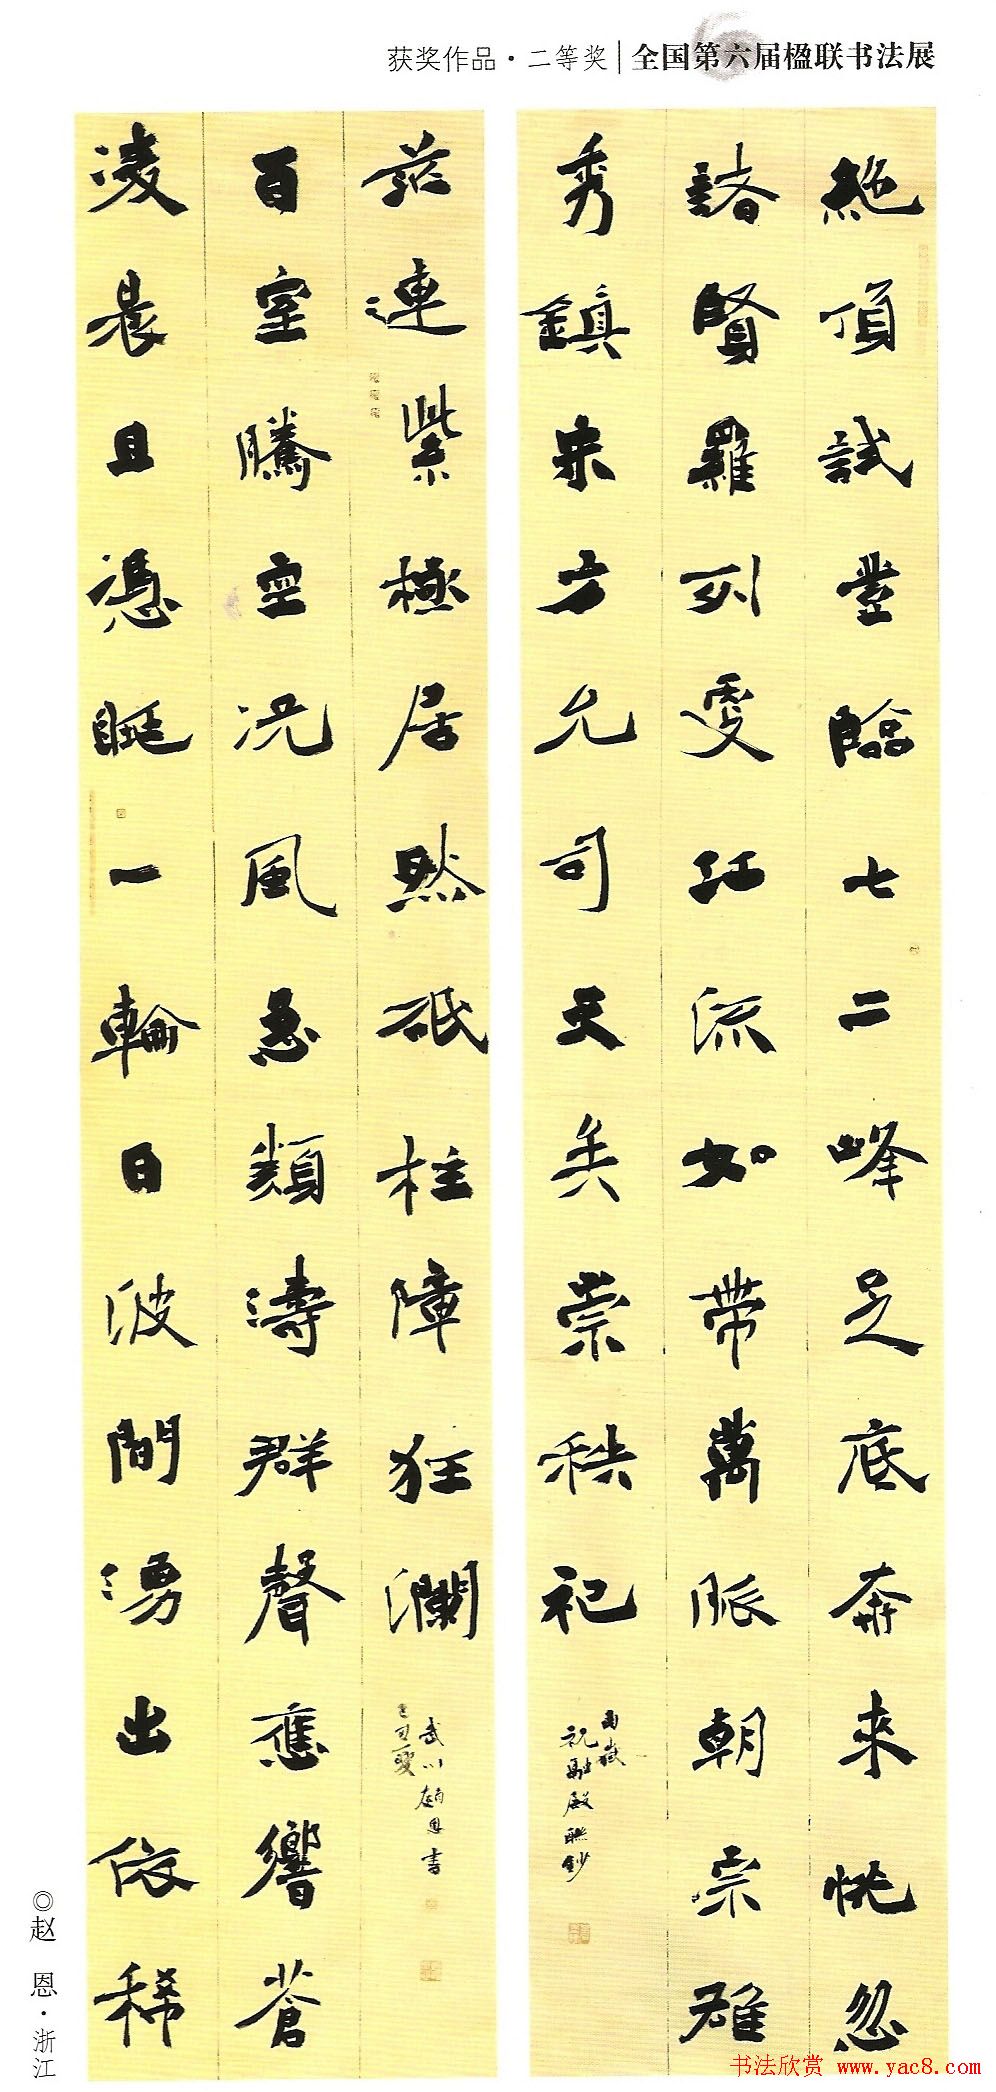 获奖作品·二等奖|全国第六届楹联书法展
絶頂試登臨七二峰足底奔來恍忽
諸賢羅列處江流如帶萬脈朝宗雄
秀鎮朱方允司天矣崇秩祀
南嶽
祝融殿聯鈔
凌晨且憑眺一輪日波間湧出依稀
百室騰空況風急類濤群聲應響蒼
茫連紫極居然砥柱障狂瀾
武川趙恩書
己丑夏
◎赵 恩·浙江
书法欣赏 www.yac8.com